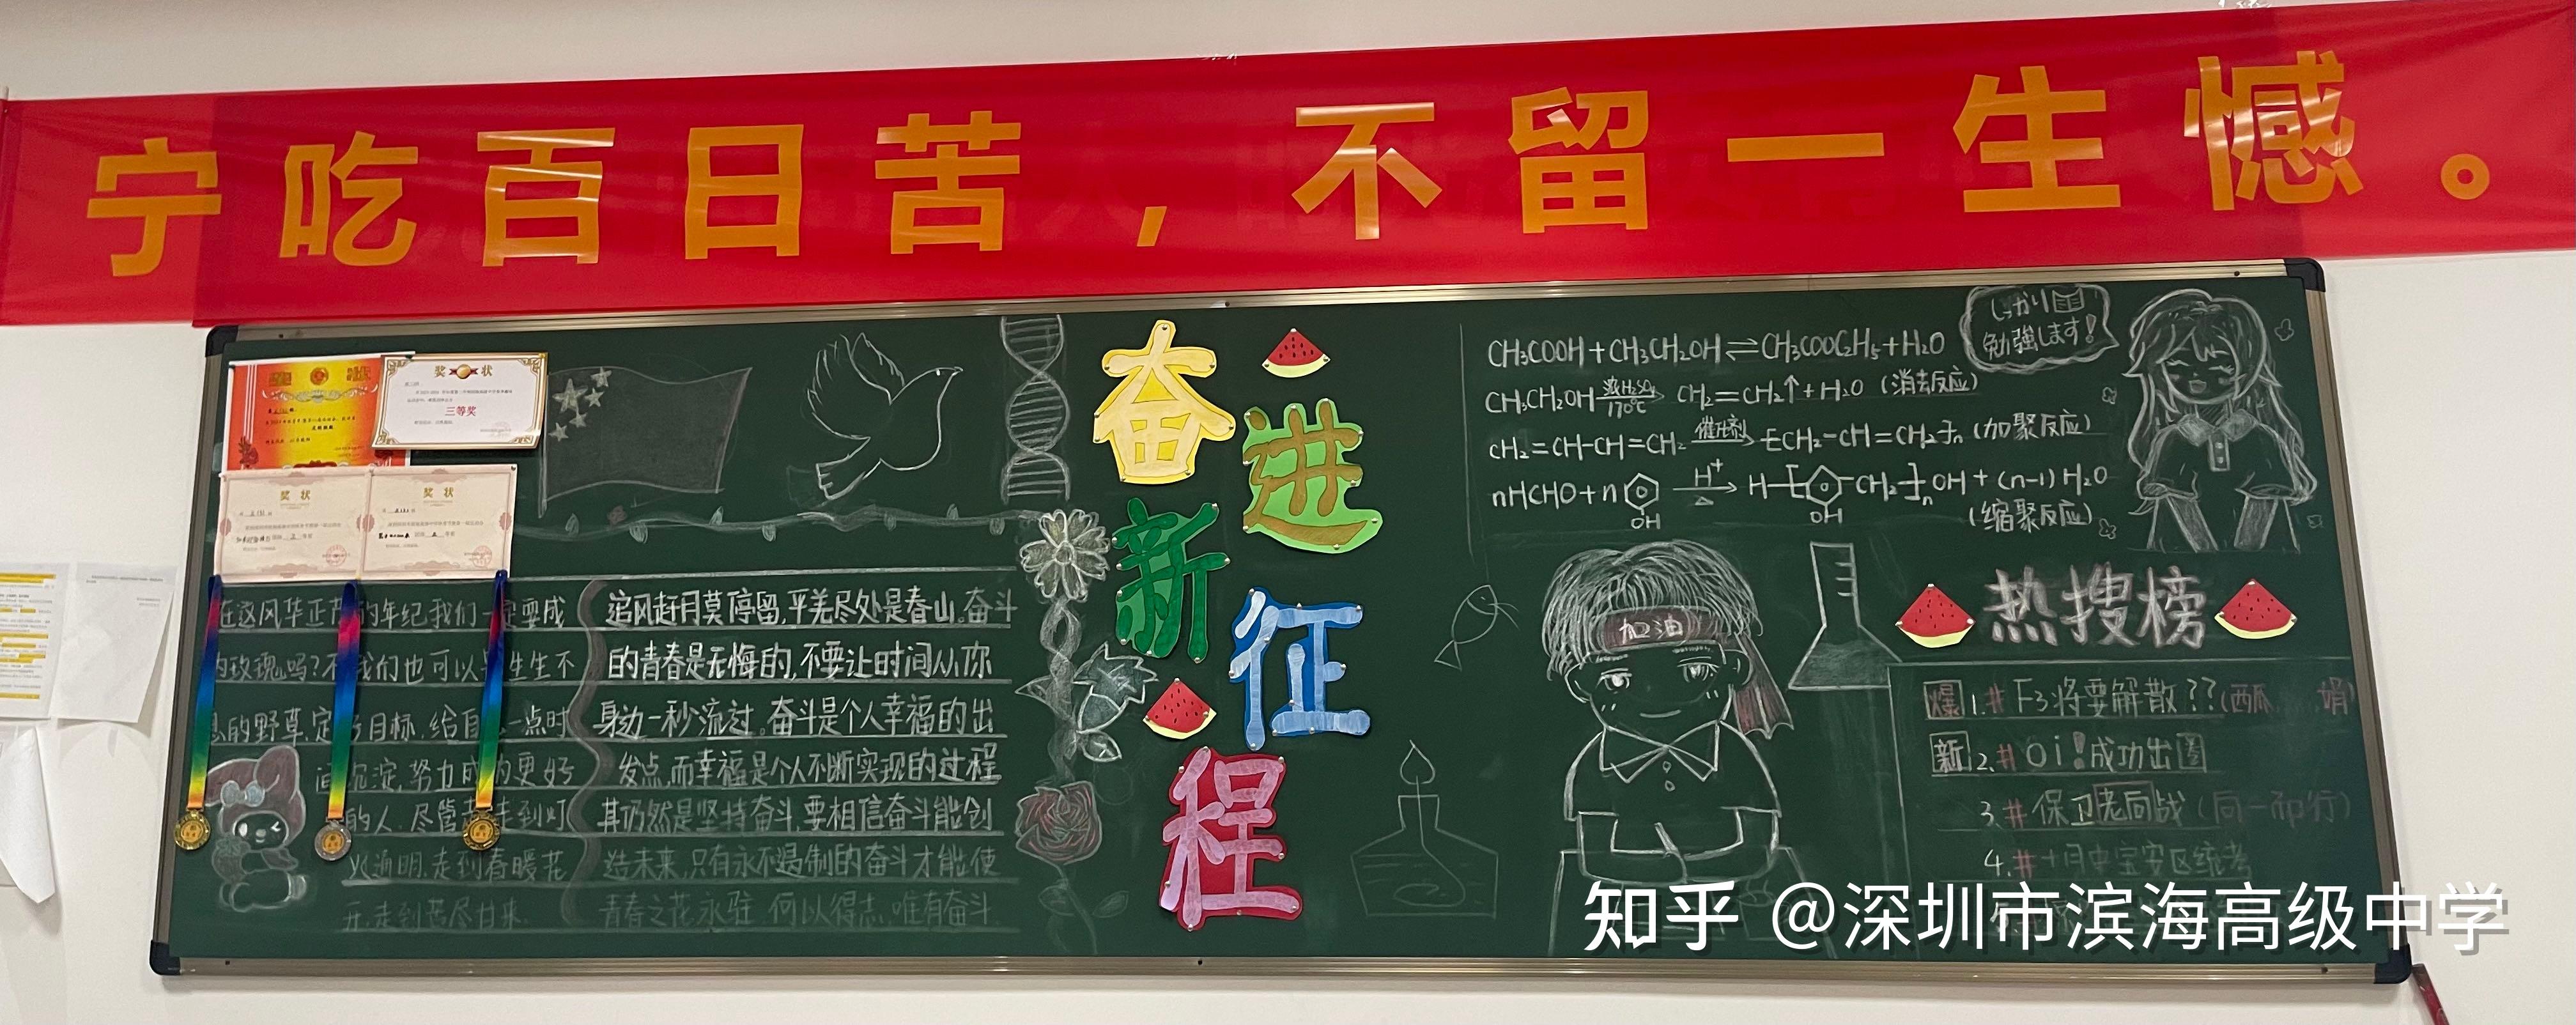 宁吃百日苦，不留一生憾。
奖状
三等奖
奖状
奖状
奋进新征程
在这风华正茂的年纪,我们一定要成
的玫瑰吗?不,我们也可以是生生不
息的野草,定 目标,给自 一点时
间沉淀,努力成为更好
的人.尽管 走到灯
火通明,走到春暖花
开,走到苦尽甘来.
追风赶月莫停留,平芜尽处是春山。奋斗
的青春是无悔的,不要让时间从你
身边一秒流过。奋斗是个人幸福的出
发点,而幸福是个人不断实现的过程
其仍然是坚持奋斗,要相信奋斗能创
造未来,只有永不遏制的奋斗才能使
青春之花永驻.何以得志,唯有奋斗.
CH₃COOH+CH₃CH₂OH⇌CH₃COOC₂H₅+H₂O
CH₃CH₂OH 浓H₂SO₄ 170℃ → CH₂=CH₂↑+H₂O (消去反应)
CH₂=CH-CH=CH₂ 催化剂 → [CH₂-CH=CH₂]n (加聚反应)
nHCHO+n OH H⁺ △ → H-[ OH -CH₂]nOH+(n-1)H₂O
(缩聚反应)
しっかり
勉強します!
加油
热搜榜
爆 1.# F3将要解散??(西瓜 娟)
新 2.# oi!成功出圈
3.# 保卫老同战(同一而行)
4.# 十月中宝安区统考
知乎 @深圳市滨海高级中学